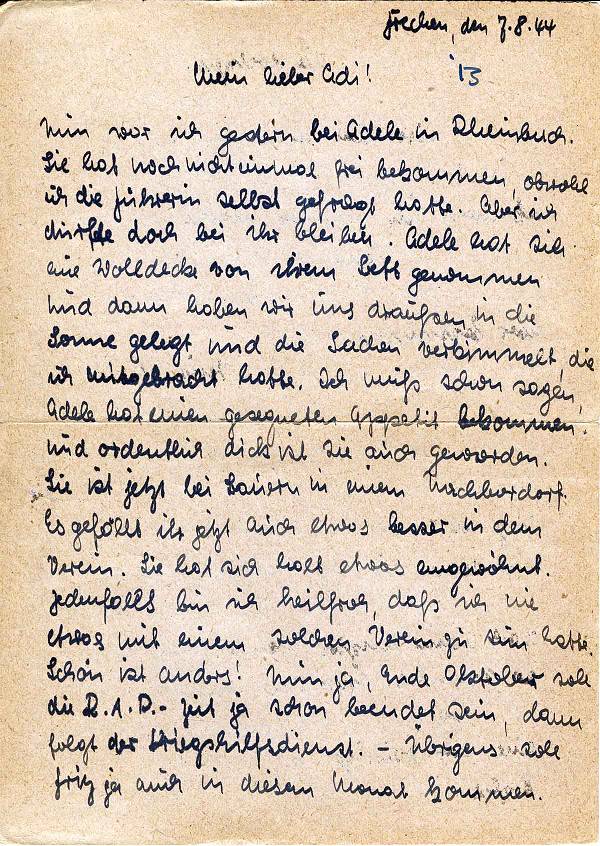 Frechen, den 7.8.44
Mein lieber Adi!
13
Nun war ich gestern bei Adele in Rheinbach.
Sie hat noch nicht einmal frei bekommen, obwohl
ich die Führerin selbst gefragt hatte. Aber ich
durfte doch bei ihr bleiben. Adele hat sich
eine Wolldecke von ihrem Bett genommen
und dann haben wir uns draußen in die
Sonne gelegt und die Sachen verkimmelt, die
ich mitgebracht hatte. Ich muß schon sagen,
Adele hat einen gesegneten Appetit bekommen.
Und ordentlich dick ist sie auch geworden.
Sie ist jetzt bei Bauern in einem Nachbardorf.
Es gefällt ihr jetzt auch etwas besser in dem
Verein. Sie hat sich halt etwas eingewöhnt.
Jedenfalls bin ich heilfroh, daß ich nie
etwas mit einem solchen Verein zu tun hatte.
Schön ist anders! Nun ja, Ende Oktober soll
die R.A.D.- Zeit ja schon beendet sein, dann
folgt der Kriegshilfsdienst. - Übrigens soll
Fritz ja auch in diesem Monat kommen.